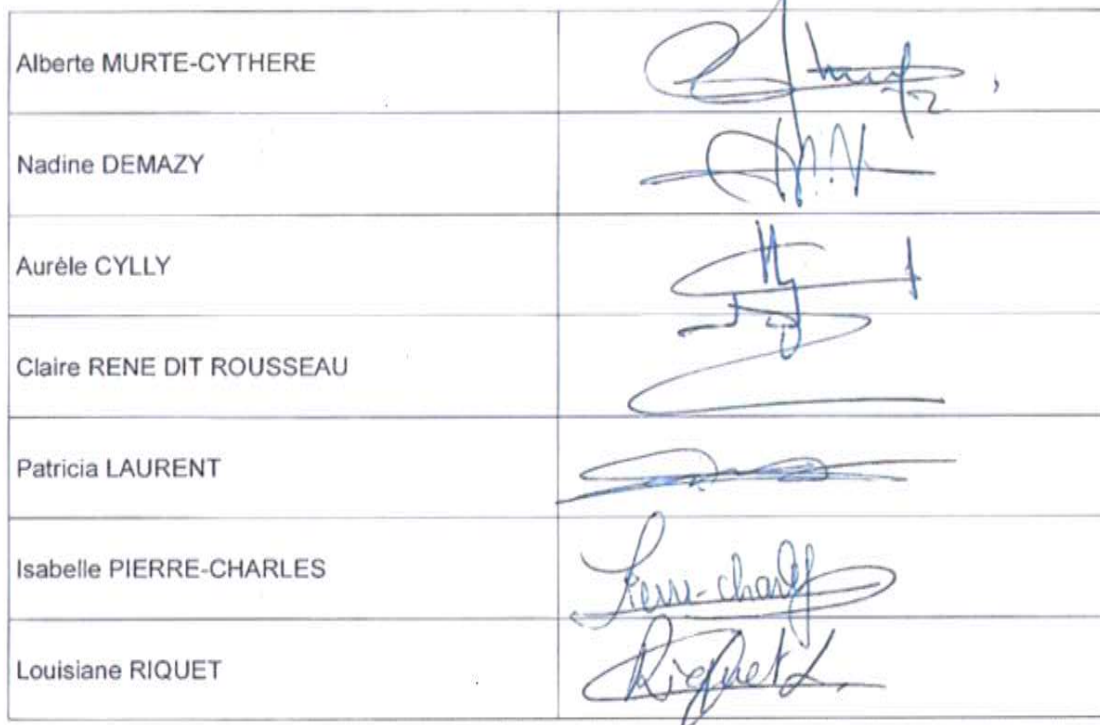 Alberte MURTE-CYTHERE
Nadine DEMAZY
Aurèle CYLLY
Claire RENE DIT ROUSSEAU
Patricia LAURENT
Isabelle PIERRE-CHARLES
Pierre-charles
Louisiane RIQUET
Riquet L.